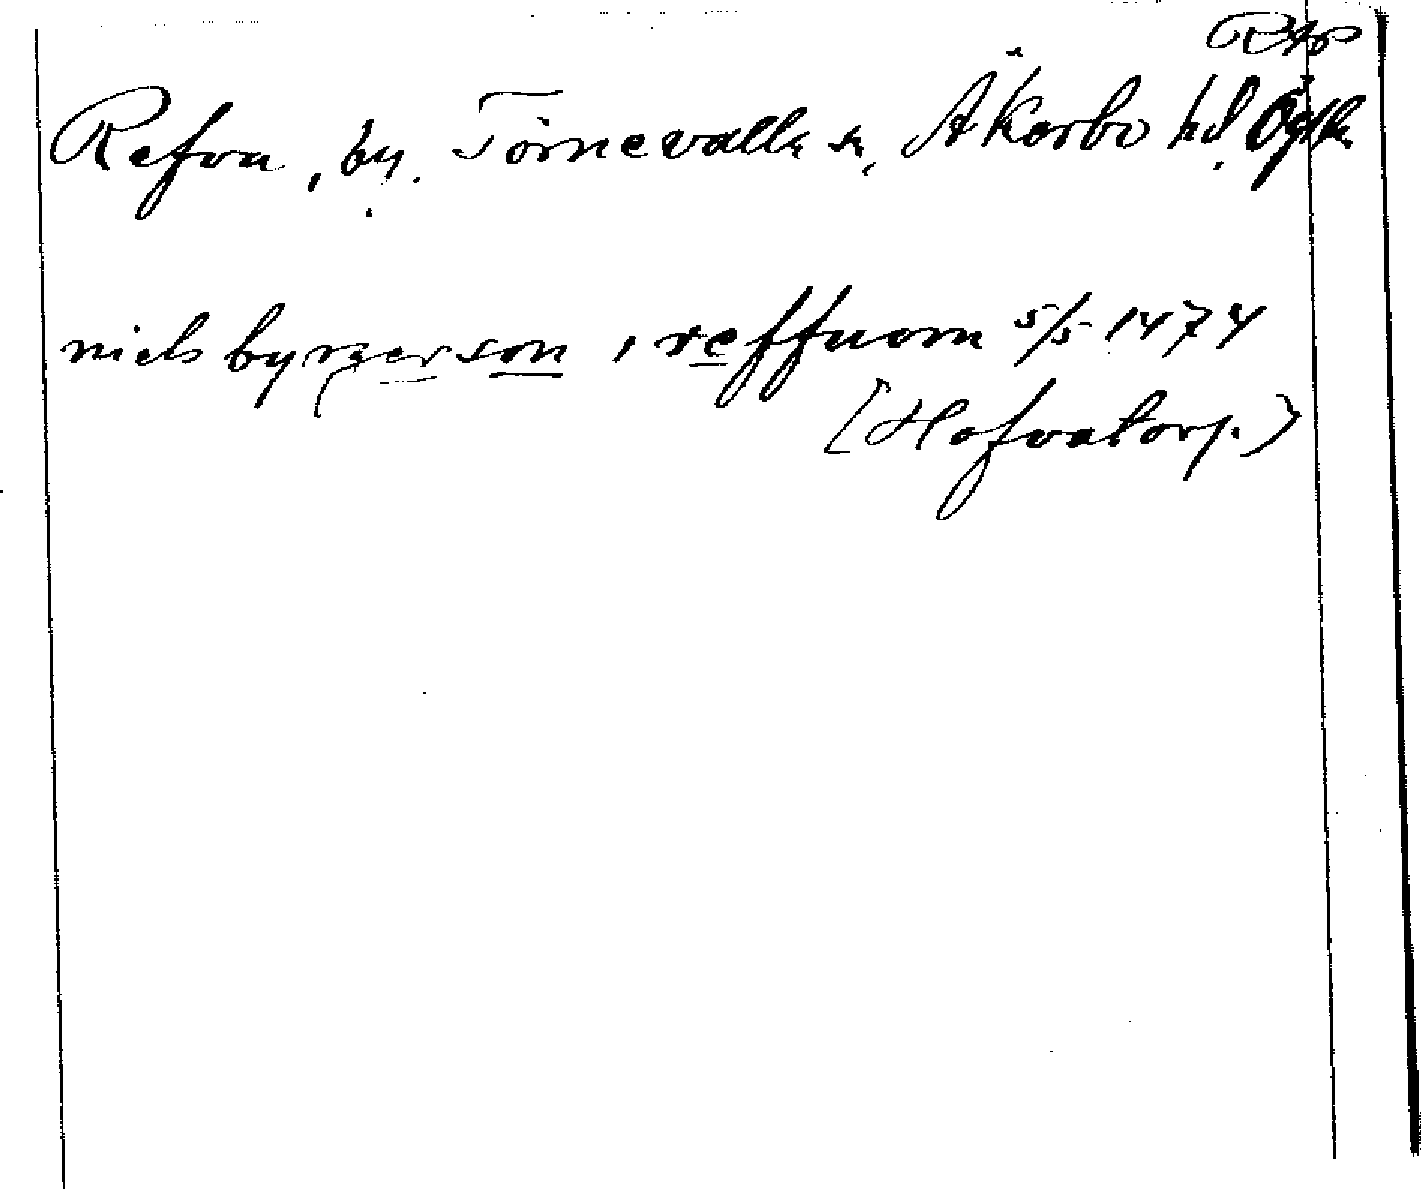 Refva, by. Törnevalla sn, Åkerbo hd, Ögtl.
niels byrgerson i reffuom 5/5 1474
(Hofvatorp.)